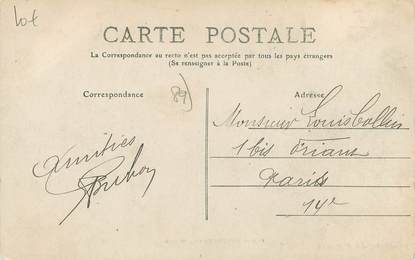 Lot
CARTE POSTALE
La Correspondance au recto n'est pas acceptée par tous les pays étrangers
(Se renseigner à la Poste)
Correspondance
89)
Adresse
Monsieur Louis Collin
1 bis Friant
Paris
14e
Amitiés